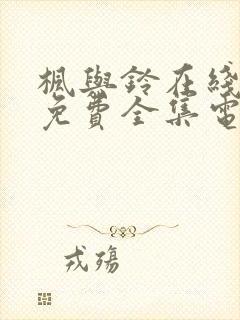 楓與鈴在綫
免費全集電
戎殤